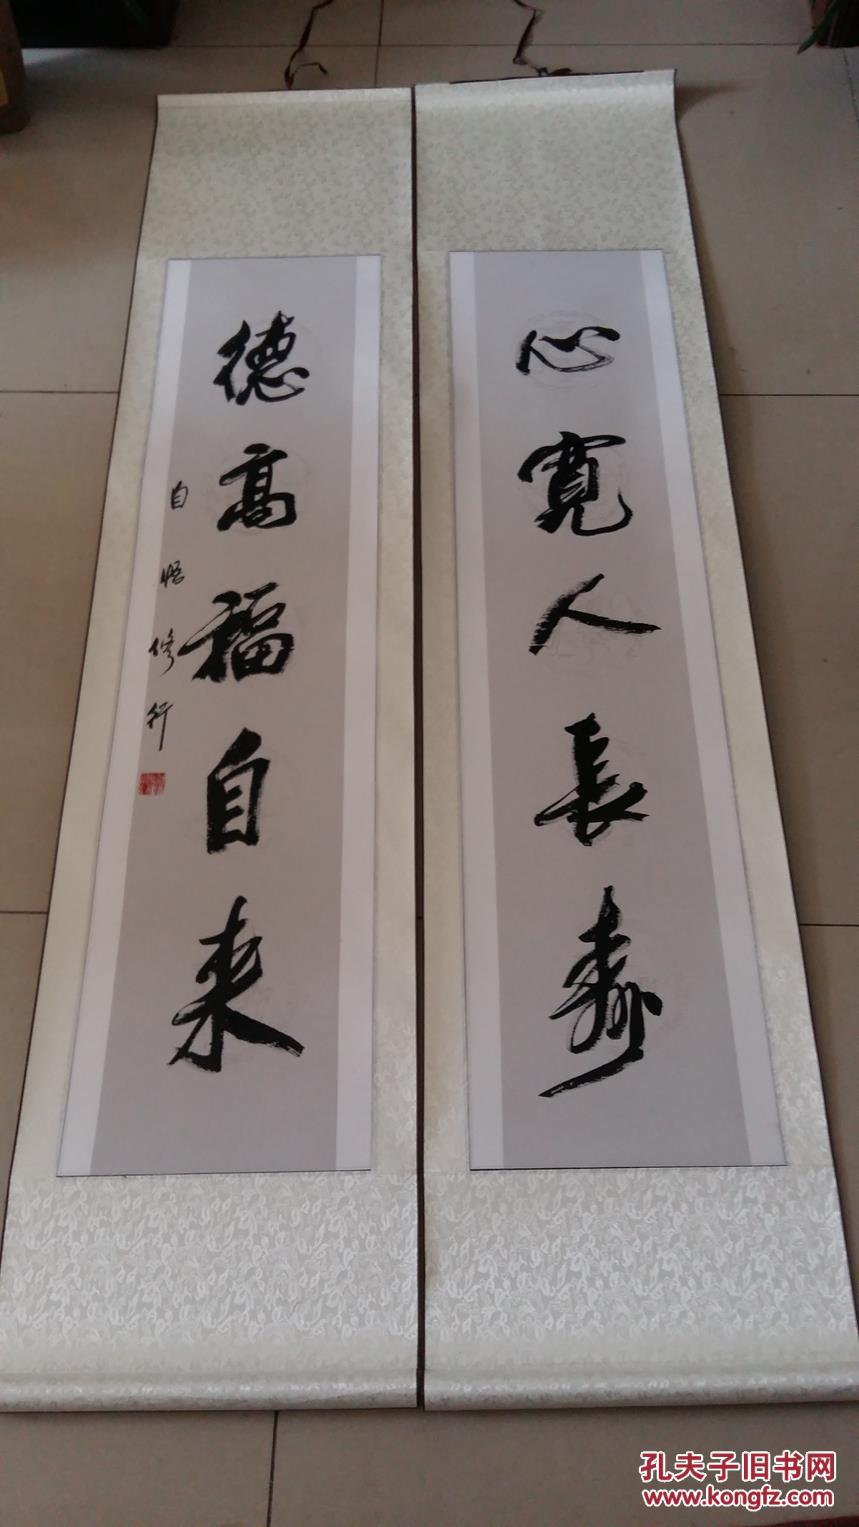 心寬人長壽
德高福自来
自悟修行
孔夫子旧书网
www.kongfz.com